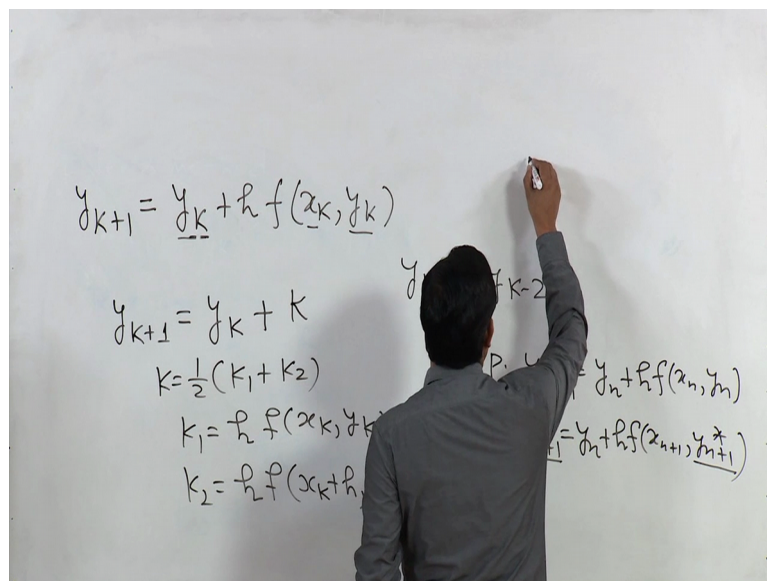 y_{k+1} = y_k + h f(x_k, y_k)
y_{k+1} = y_k + K
K = 1/2 (K_1 + K_2)
K_1 = h f(x_k, y_k
K_2 = h f(x_k + h,
y
k-2
P.
= y_n + h f(x_n, y_n)
+1 = y_n + h f(x_{n+1}, y*_{n+1})